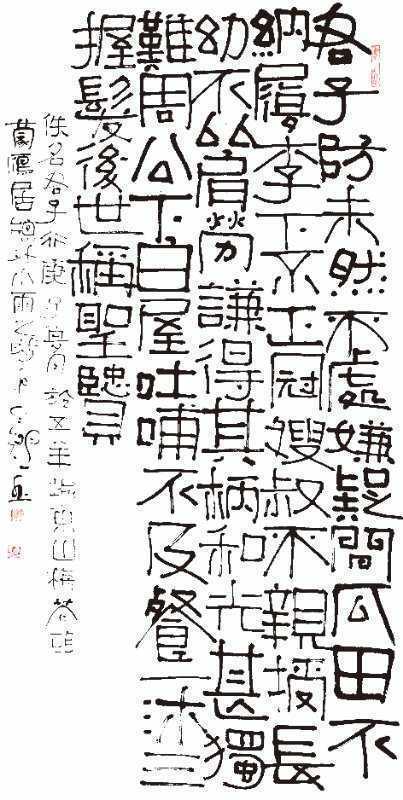 君子防未然不處嫌疑間瓜田不
納履李下不正冠嫂叔不親授長
幼不比肩勞謙得其柄和光甚獨
難周公下白屋吐哺不及餐一沐三
握髮後世稱聖賢
佚名君子行庚 於五羊 東山梅
居 小雨